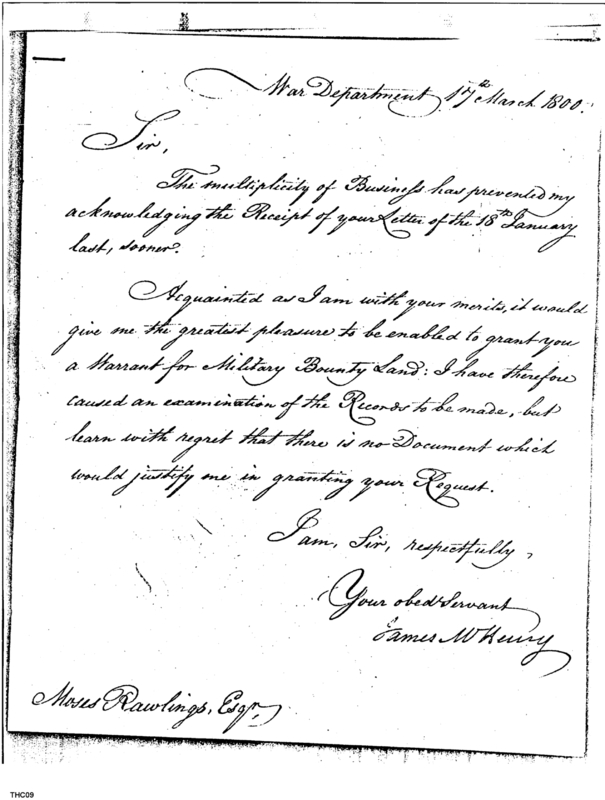 War Department 17th March 1800.
Sir,
The multiplicity of Business has prevented my
acknowledging the Receipt of your Letter of the 18th January
last, sooner.
Acquainted as I am with your merits, it would
give me the greatest pleasure to be enabled to grant you
a Warrant for Military Bounty Land: I have therefore
caused an examination of the Records to be made, but
learn with regret that there is no Document which
would justify me in granting your Request.
I am, Sir, respectfully,
Your obed Servant
James McHenry
Moses Rawlings, Esqr.
THC09